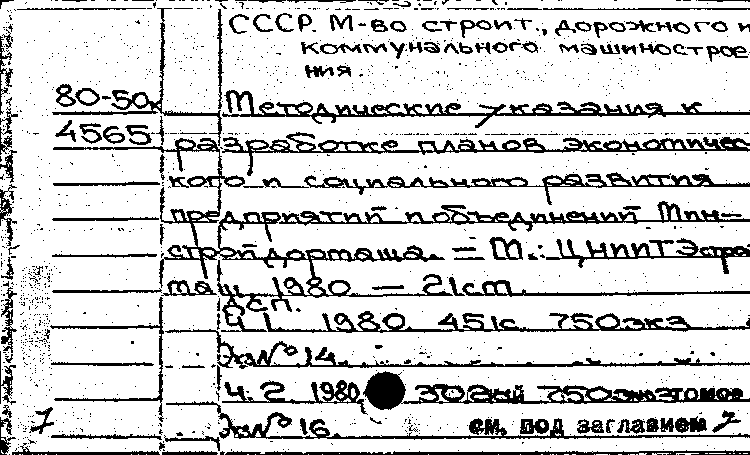 СССР. М-во строит., дорожного и
коммунального машинострое
ния.
80-50к
Методические указания к
4565
разработке планов экономичес
кого и социального развития
предприятий и объединений Мин-
стройдормаша. — М.: ЦНИИТЭстрой
маш, 1980. — 21 см.
ДСП.
Ч. 1. 1980. 451с. 750экз
Экз № 14.
Ч. 2. 1980
Экз № 16. см. под заглавием